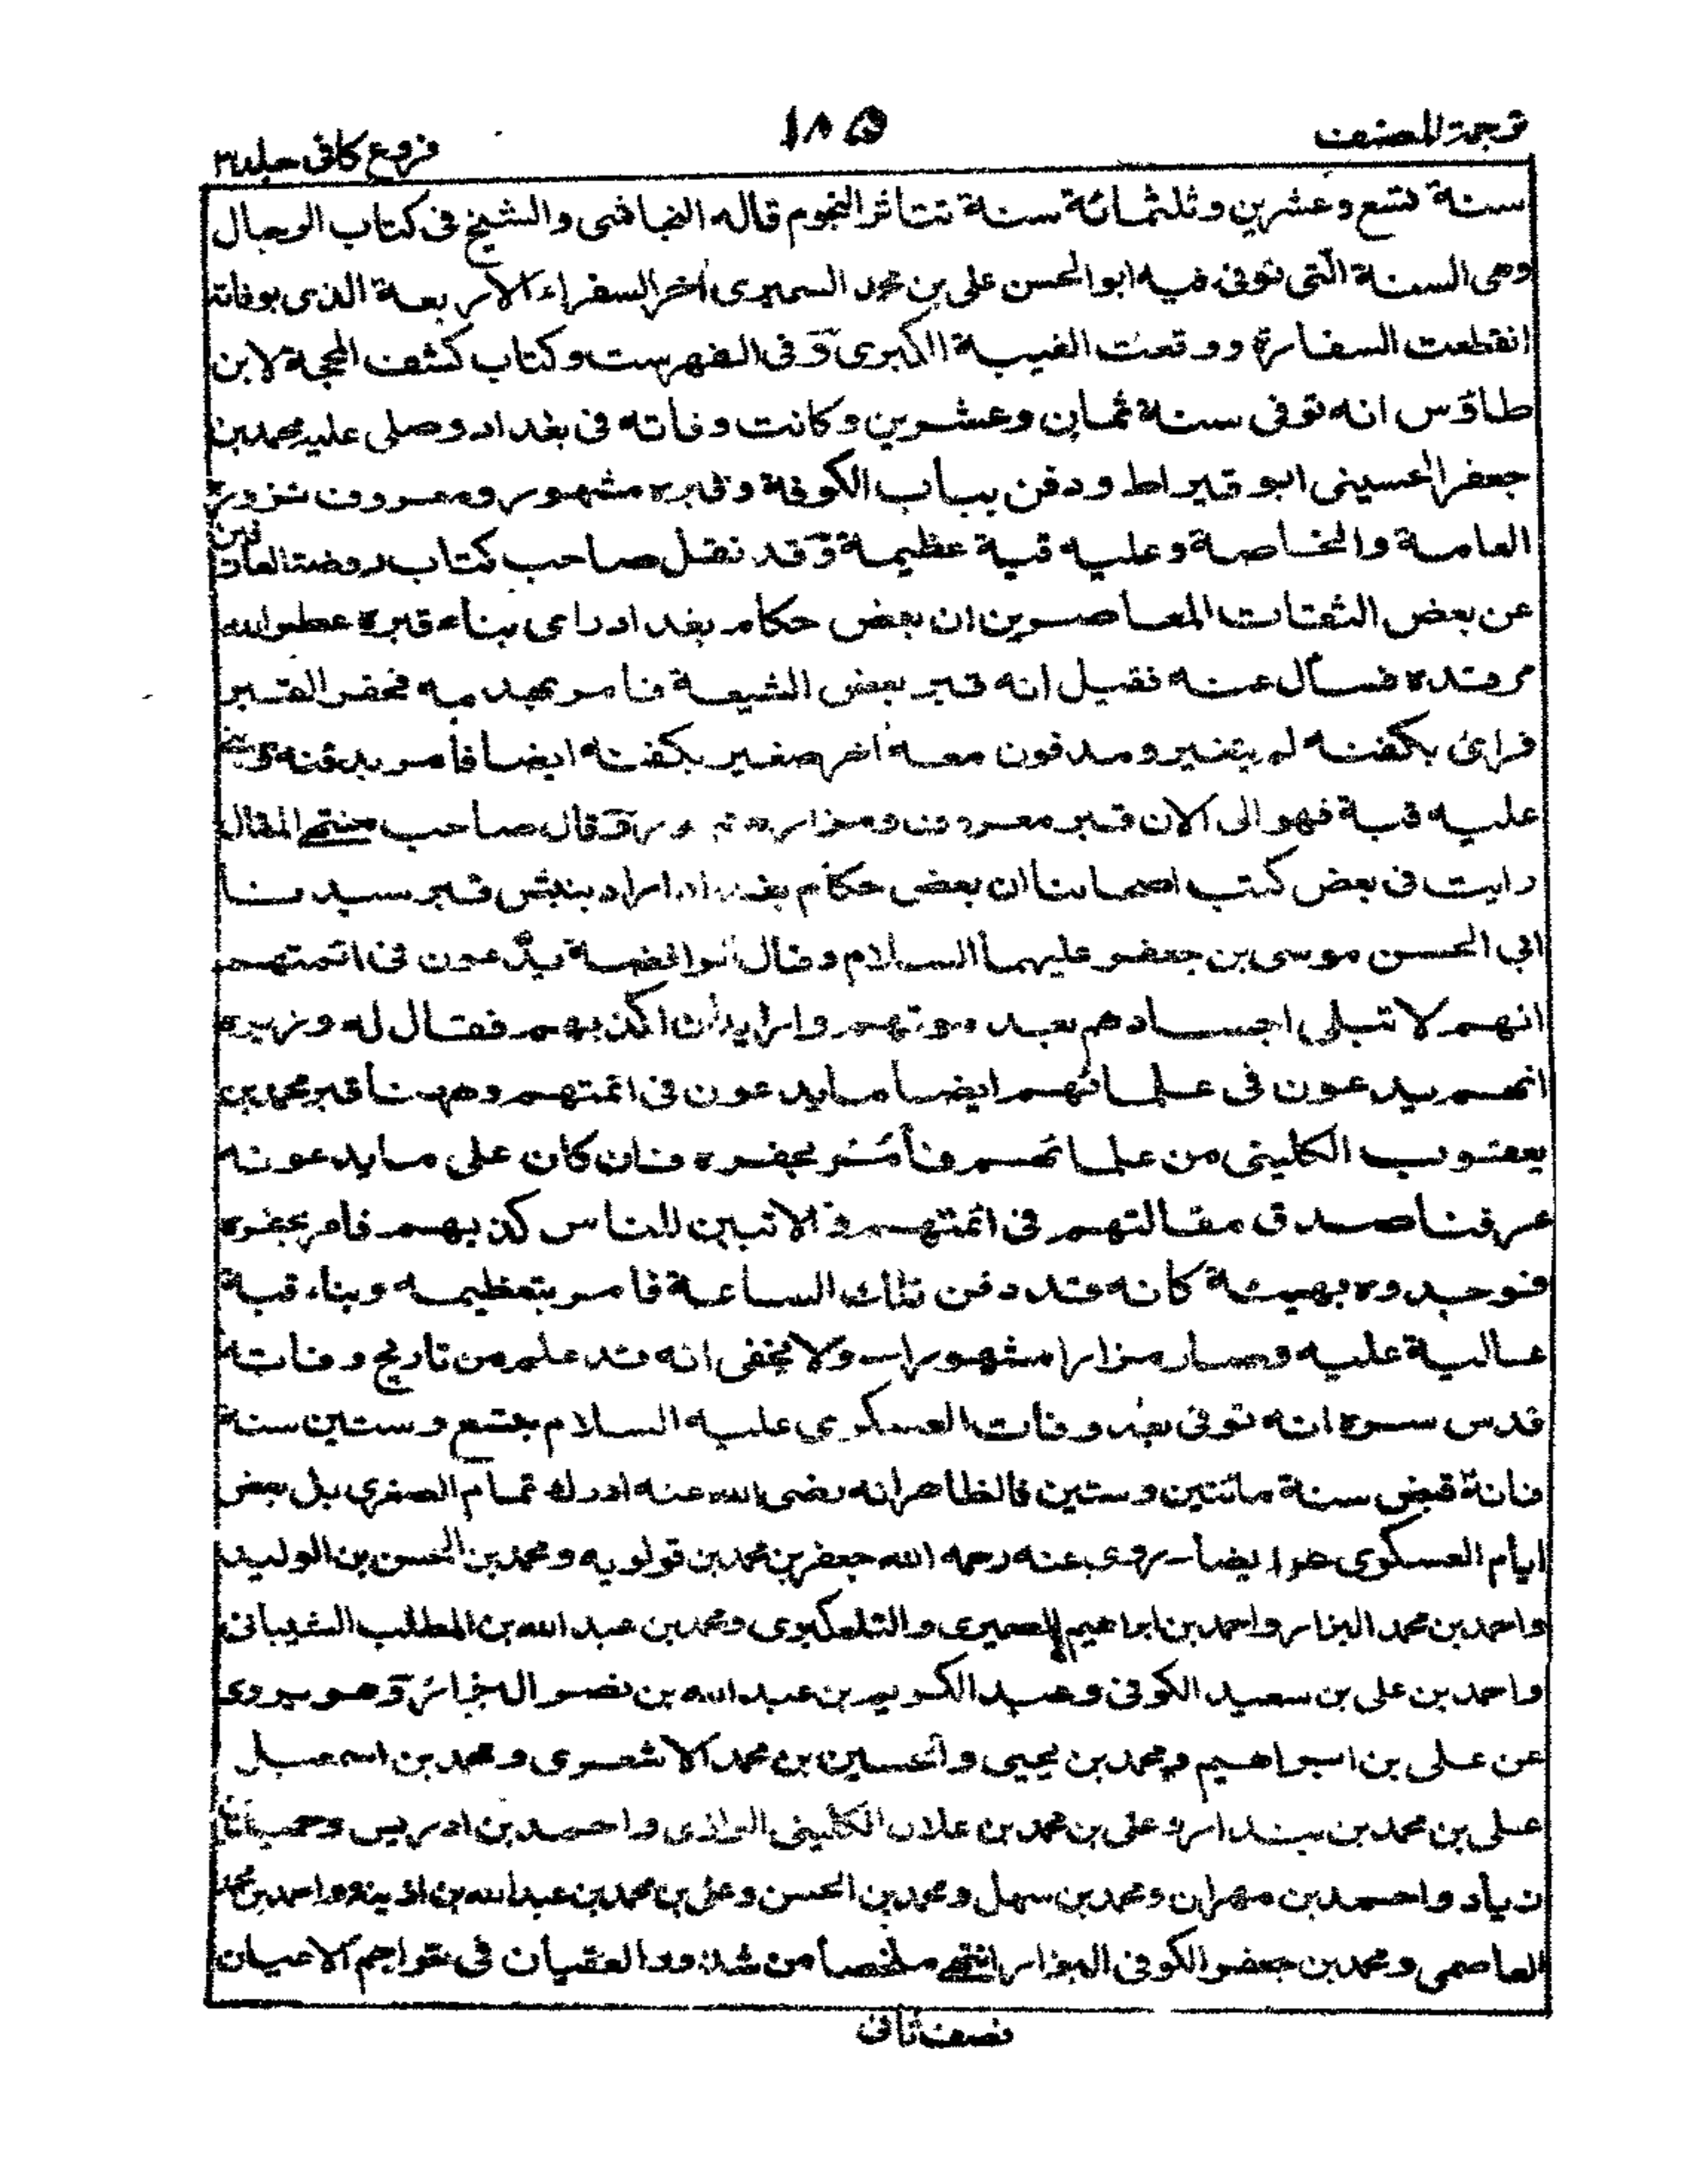 ترجمة المصنف
١٨٥
فروع كافى جلد٣
سنة تسع وعشرين وثلثمائة سنة تتناثر النجوم قاله النجاشى والشيخ فى كتاب الرجال
وهى السنة الّتى توفى فيه ابو الحسن على بن محمد السميرى أخر السفراء الاربعة الذى بوفاته
انقطعت السفارة ووقعت الغيبة الكبرى وَفى الفهرست وكتاب كشف المحجة لابن
طاؤس انه توفى سنة ثمان وعشرين وكانت وفاته فى بغداد وصلى عليه محمد بن
جعفر الحسينى ابو قيراط ودفن بباب الكوفة وقبره مشهور ومعروف تزوره
العامة والخاصة وعليه قبة عظيمة وَقد نقل صاحب كتاب روضة العارفين
عن بعض الثقات المعاصرين ان بعض حكام بغداد راى بناء قبره عطر الله
مرقده فسأل عنه فقيل انه قبر بعض الشيعة فامر بهدمه فحفر القبر
فرائ بكفنه لم يتغير ومدفون معه أخر صغير بكفنه ايضا فأمر بدفنه وبنى
عليه قبة فهو الى الان قبر معروف ومزار وقال صاحب منتهى المقال
رايت فى بعض كتب اصحابنا ان بعض حكام بغداد اراد بنبش قبر سيدنا
ابي الحسن موسى بن جعفر عليهما السلام وقال الرافضة يدّعون فى ائمتهم
انهم لا تبلى اجسادهم بعد موتهم واريد أن اكذبهم فقال له وزيره
انهم يدعون فى علمائهم ايضا ما يدعون فى ائمتهم وههنا قبر محمد بن
يعقوب الكلينى من علمائهم فأمُر بحفره فان كان على ما يدعونه
عرفنا صدق مقالتهم فى ائمتهم والا تبين للناس كذبهم فامر بحفره
فوجدوه بهيئة كانه قد دفن تلك الساعة فامر بتعظيمه وبناء قبة
عالية عليه وصار مزارا مشهورا ولا يخفى انه قد علم من تاريخ وفاته
قدس سره انه توفى بعد وفات العسكرى عليه السلام بتسع وستين سنة
فانه قبض سنة مائتين وستين فالظاهر انه رضى الله عنه ادرك تمام الصغرى بل بعض
ايام العسكرى ايضا يروى عنه رحمه الله جعفر بن محمد بن قولويه ومحمد بن الحسن بن الوليد
واحمد بن محمد البزار واحمد بن ابراهيم الصميرى والتلعكبرى ومحمد بن عبد الله بن المطلب الشيبانى
واحمد بن على بن سعيد الكوفى وعبد الكريم بن عبد الله بن نصر وَهو يروى
عن على بن ابراهيم ومحمد بن يحيى والحسين بن محمد الاشعرى ومحمد بن اسمعيل
على بن محمد بن بندار وعلى بن محمد بن علان الكلينى الرازى واحمد بن ادريس وحميد بن
زياد واحمد بن مهران ومحمد بن سهل ومحمد بن الحسن وعلى بن محمد بن عبد الله بن اذينة واحمد بن محمد
العاصمى ومحمد بن جعفر الكوفى البزار انتهى ملخصا من شذور العقيان فى تراجم الاعيان
نصف ثانى